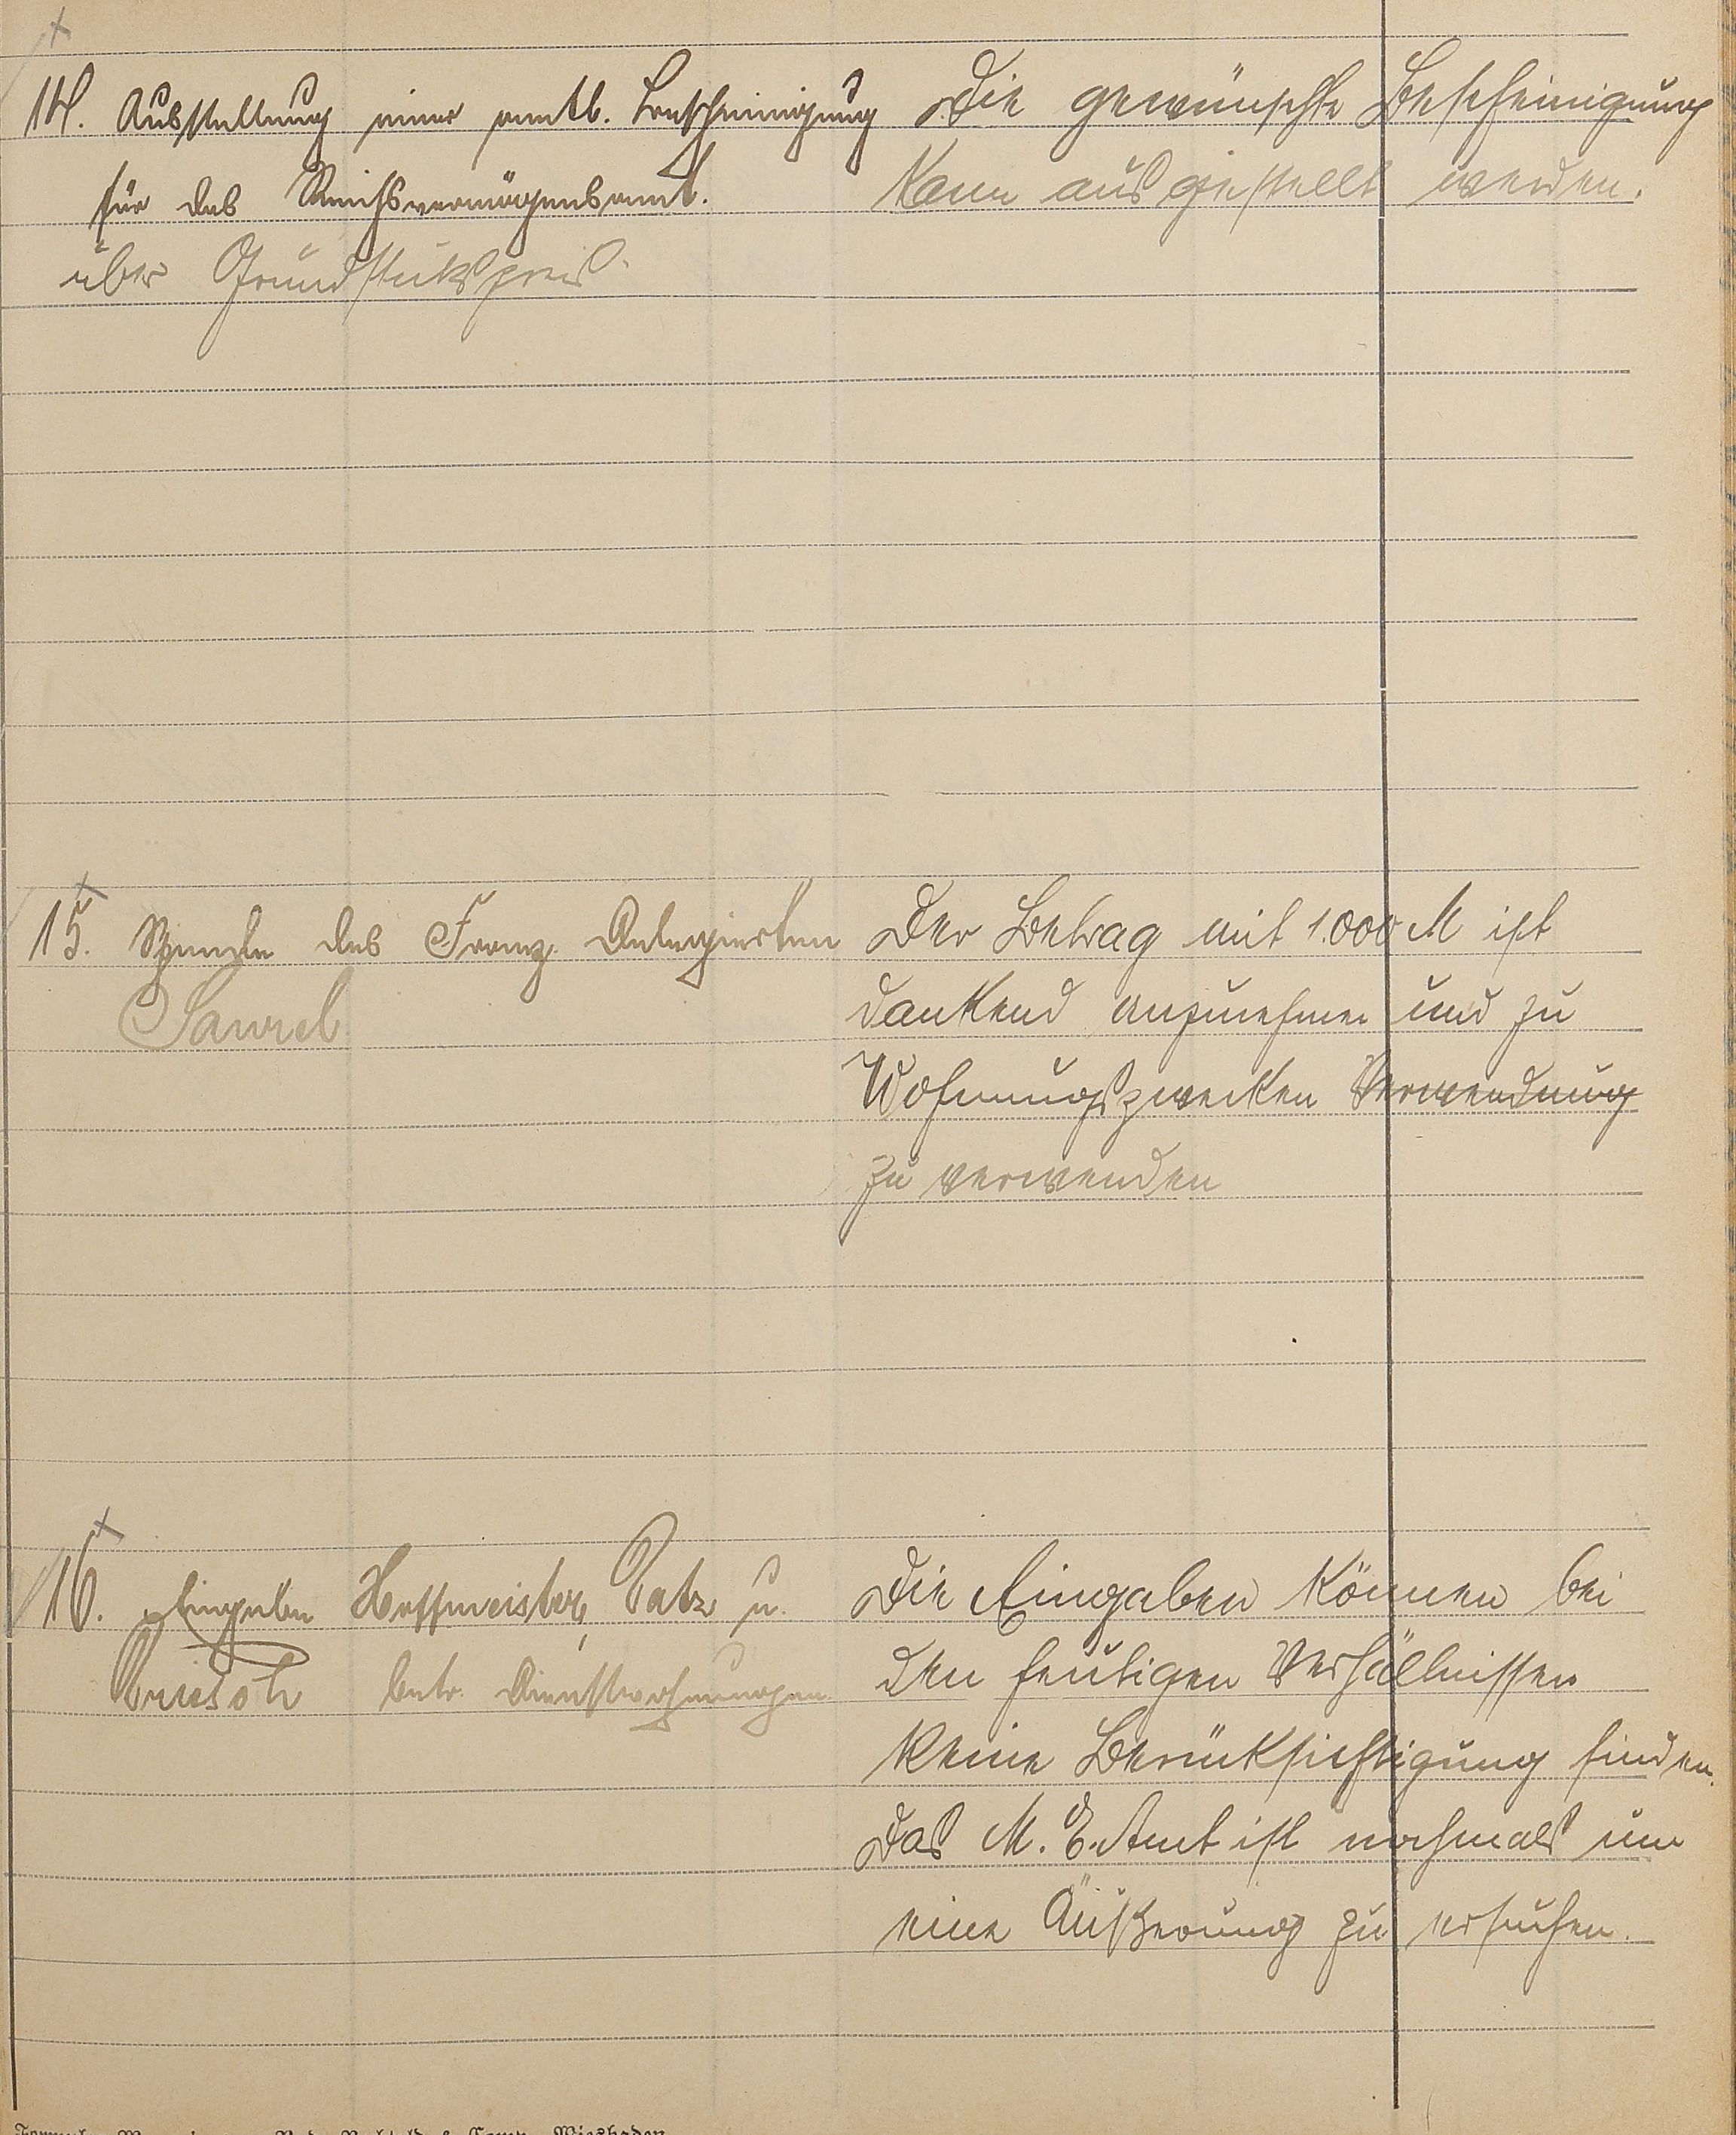 14. Ausstellung einer amtl. Bescheinigung
für das Reichsvermögensamt.
über Grundstükspreis.
Die gewünschte Bescheinigung
Kann ausgestellt werden.
15. Spende des Franz. Delegierten
Saurel
Der Betrag mit 1.000 M ist
dankend anzunehmen und zu
Wohnungszwecken Verwendung
zu verwenden
16. Eingaben Hoffmeister, Patz u.
betr. Dienstwohnungen
Die Eingaben können bei
den heutigen Verhältnissen
keine Berüksichtigung finden.
Das M. E. Amt ist nochmals um
eine Äußerung zu ersuchen.
Wiesbaden